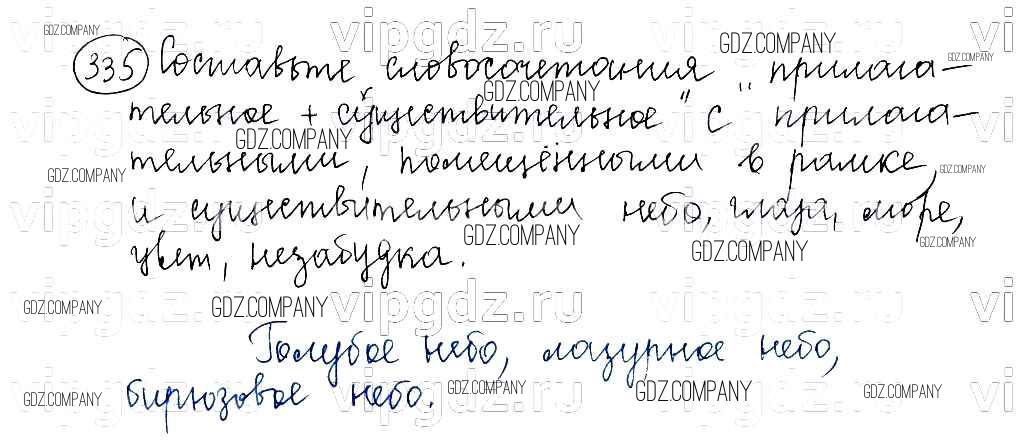 335 Составьте словосочетания "прилага-
тельное + существительное" с прилага-
тельными, помещёнными в рамке,
и существительными небо, глаза, море,
цвет, незабудка.
Голубое небо, лазурное небо,
бирюзовое небо.
GDZ.COMPANY
vipgdz.ru